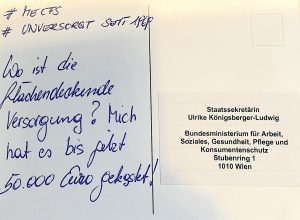 # MECFS
# UNVERSORGT SEIT APUP
Wo ist die
flächendeckende
Versorgung? Mich
hat es bis jetzt
50.000 Euro gekostet!
Staatssekretärin
Ulrike Königsberger-Ludwig
Bundesministerium für Arbeit,
Soziales, Gesundheit, Pflege und
Konsumentenschutz
Stubenring 1
1010 Wien